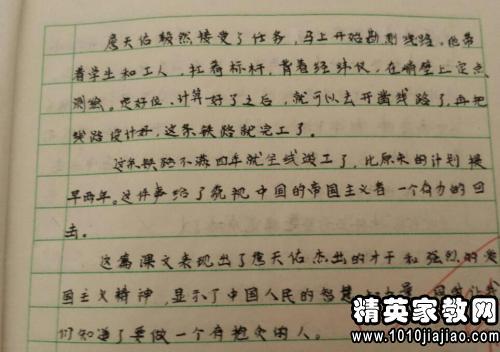 詹天佑毅然接受了任务，马上开始勘测线路。他带
着学生和工人，扛着标杆，背着经纬仪，在峭壁上定点、
测绘。定好位、计算好了之后，就可以去开凿线路了，再把
线路设计好，这条铁路就完工了。
这条铁路不满四年就全线竣工了，比原来的计划提
早两年。这件事给了藐视中国的帝国主义者一个有力的回
击。
这篇课文表现出了詹天佑杰出的才干和强烈的爱
国主义精神，显示了中国人民的智慧
们知道了要做一个有抱负的人。
精英家教网
www.1010jiajiao.com